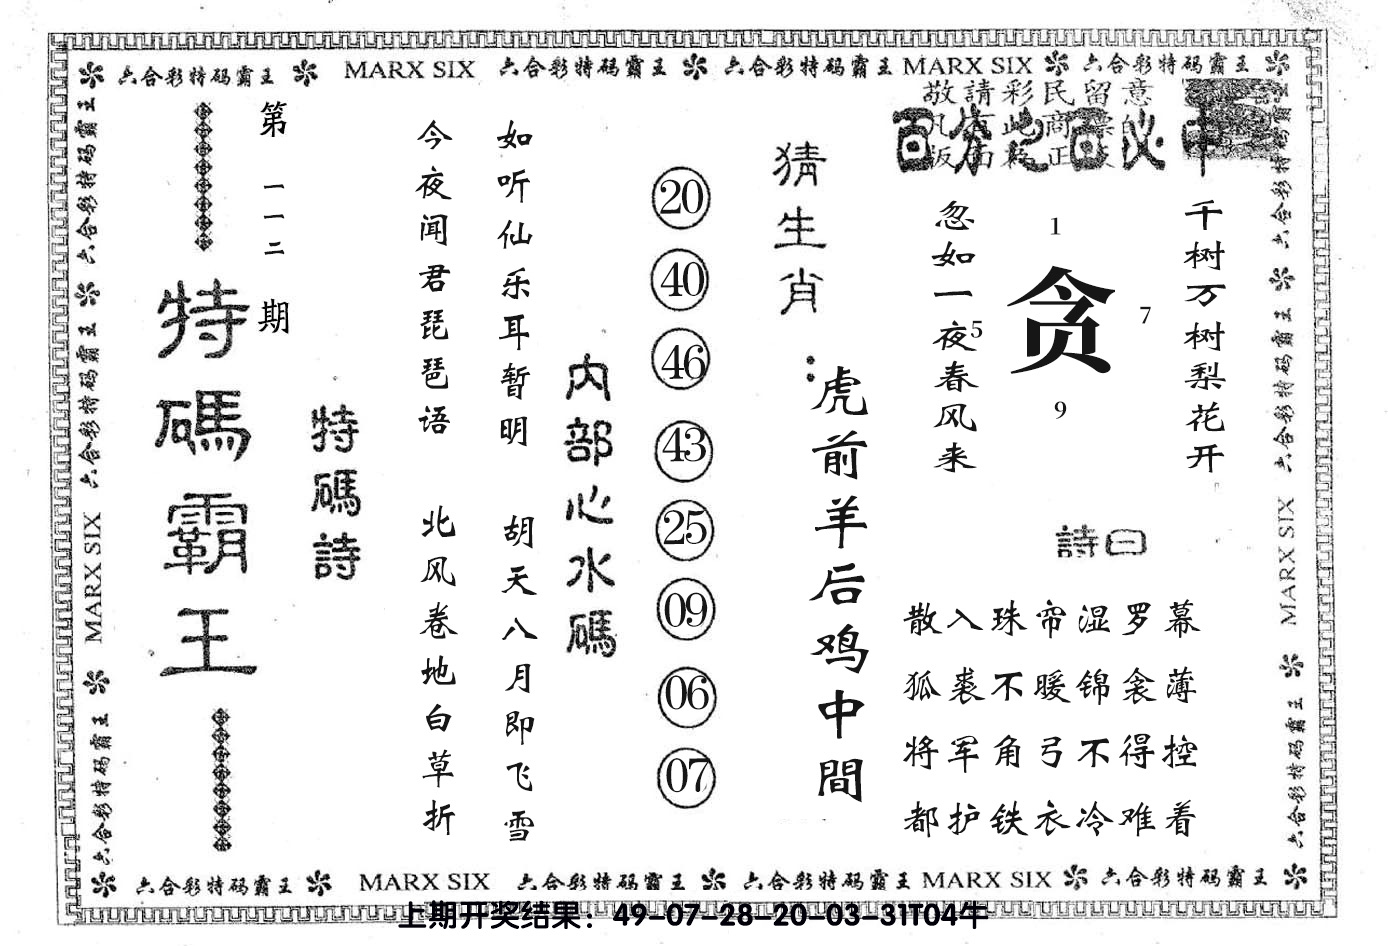 六合彩特码霸王 MARX SIX 六合彩特码霸王 六合彩特码霸王 MARX SIX 六合彩特码霸王
敬請彩民留意
百分之百必中
第一一二期
特碼霸王
特碼詩
今夜闻君琵琶语
如听仙乐耳暂明
北风卷地白草折
胡天八月即飞雪
内部心水碼
20
40
46
43
25
09
06
07
猜生肖:
虎前羊后鸡中間
忽如一夜春风来
千树万树梨花开
1
5
贪
7
9
詩曰
散入珠帘湿罗幕
狐裘不暖锦衾薄
将军角弓不得控
都护铁衣冷难着
六合彩特码霸王 六合彩特码霸王 MARX SIX 六合彩特码霸王
六合彩特码霸王 六合彩特码霸王 MARX SIX 六合彩特码霸王
六合彩特码霸王 MARX SIX 六合彩特码霸王 六合彩特码霸王 MARX SIX 六合彩特码霸王
上期开奖结果：49-07-28-20-03-31T04牛